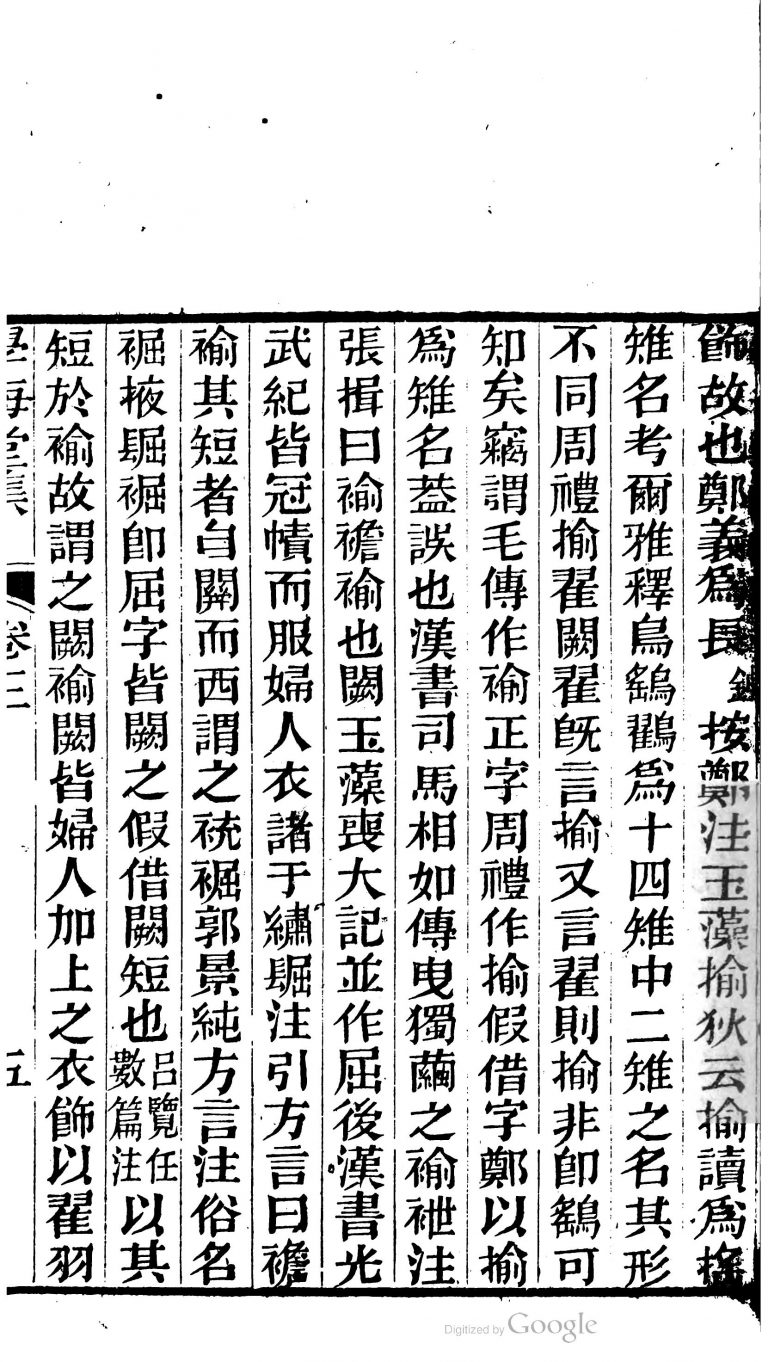 飾故也鄭義爲長 按鄭注玉藻揄狄云揄讀爲搖
雉名考爾雅釋鳥鷂鸐爲十四雉中二雉之名其形
不同周禮揄翟闕翟旣言揄又言翟則揄非卽鷂可
知矣竊謂毛傳作褕正字周禮作揄假借字鄭以揄
爲雉名葢誤也漢書司馬相如傳曳獨繭之褕袣注
張揖曰褕襜褕也闕玉藻喪大記並作屈後漢書光
武紀皆冠幘而服婦人衣諸于繡䘿注引方言曰襜
褕其短者自關而西謂之䘪䘿郭景純方言注俗名
䘿掖䘿䘿卽屈字皆闕之假借闕短也呂覽任數篇注以其
短於褕故謂之闕褕闕皆婦人加上之衣飾以翟羽
學海堂集 卷三 五
Digitized by Google